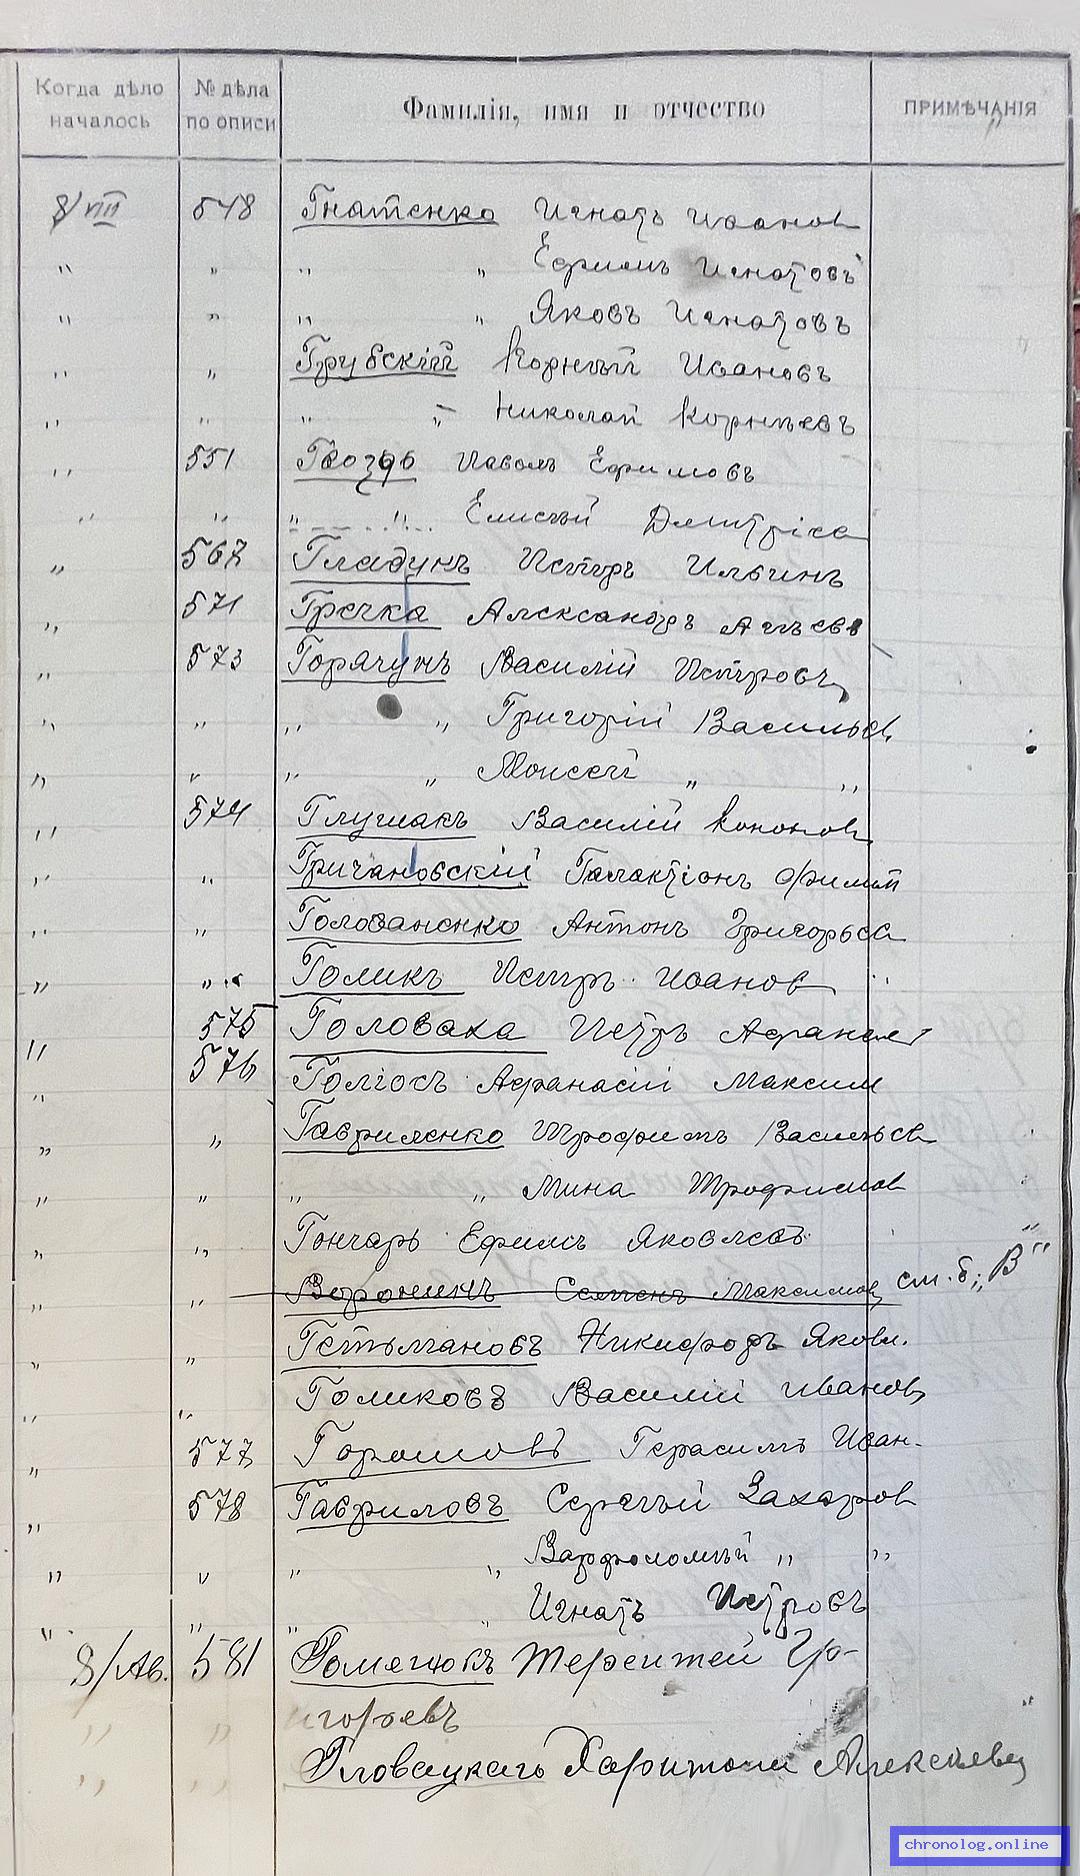 Когда дѣло началось № дѣла по описи Фамилія, имя и отчество ПРИМѢЧАНІЯ
8/VIII 548 Гнатенко Игнатъ Иванов
" " " " Ефимъ Игнатовъ
" " " " Яковъ Игнатовъ
" " Грубскій Корній Ивановъ
" " " " Николай Корнѣевъ
" 551 Гвоздь Павелъ Ефимовъ
" " " " Елисѣй Дмитріев
" 567 Гладунъ Петръ Ильинъ
" 571 Гречка Александръ
" 573 Горячунъ Василій Петровъ
" " " " Григорій Васильев
" " " " Моисей " "
" 574 Глушакъ Василій Кононов
" " Гричановскій Галактіонъ Филип
" " Голованенко Антонъ Григорьев
" " Голикъ Петръ Иванов
575 Головаха Петръ Афанас
" 576 Голіосъ Афанасій Максим
" " Гавриленко Трофимъ Васильев
" " " " Мина Трофимов
" " Гончаръ Ефимъ Яковлевъ
" " Воронинъ Семенъ Максимов см. б. „В"
" " Гетьмановъ Никифоръ Яковл.
" " Голиковъ Василій Иванов
" 577 Горошовъ Герасимъ Иван.
" 578 Гавриловъ Сергѣй Захаров
" " " " Варфоломѣй " "
" " " " Игнатъ Петровъ
8/Ав. 581 Терентей Гр-
" " игорьевъ
" " Гловацкаго Харитона Алексѣева
chronolog.online